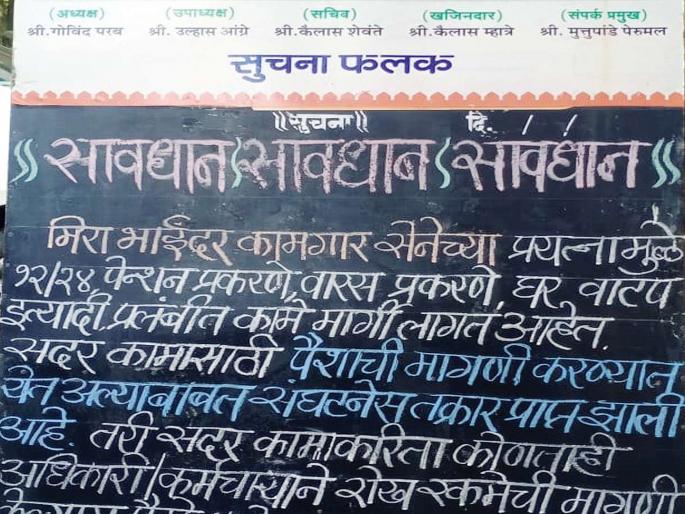 (अध्यक्ष) (उपाध्यक्ष) (सचिव) (खजिनदार) (संपर्क प्रमुख)
श्री.गोविंद परब श्री. उल्हास आंग्रे श्री.कैलास शेवंते श्री.कैलास म्हात्रे श्री. मुत्तुपांडे पेरुमल
सुचना फलक
॥सुचना॥ दि. / /
सावधान सावधान सावधान
मिरा भाईंदर कामगार सेनेच्या प्रयत्नामुळे
१२/२४, पेन्शन प्रकरणे, वारस प्रकरणे, घर वाटप
इत्यादी प्रलंबीत कामे मार्गी लागत आहेत.
सदर कामासाठी पैशाची मागणी करण्यात
येत अल्याबाबत संघटनेस तक्रार प्राप्त झाली
आहे. तरी सदर कामाकरिता कोणताही
अधिकारी/कर्मचाऱ्याने रोख रकमेची मागणी